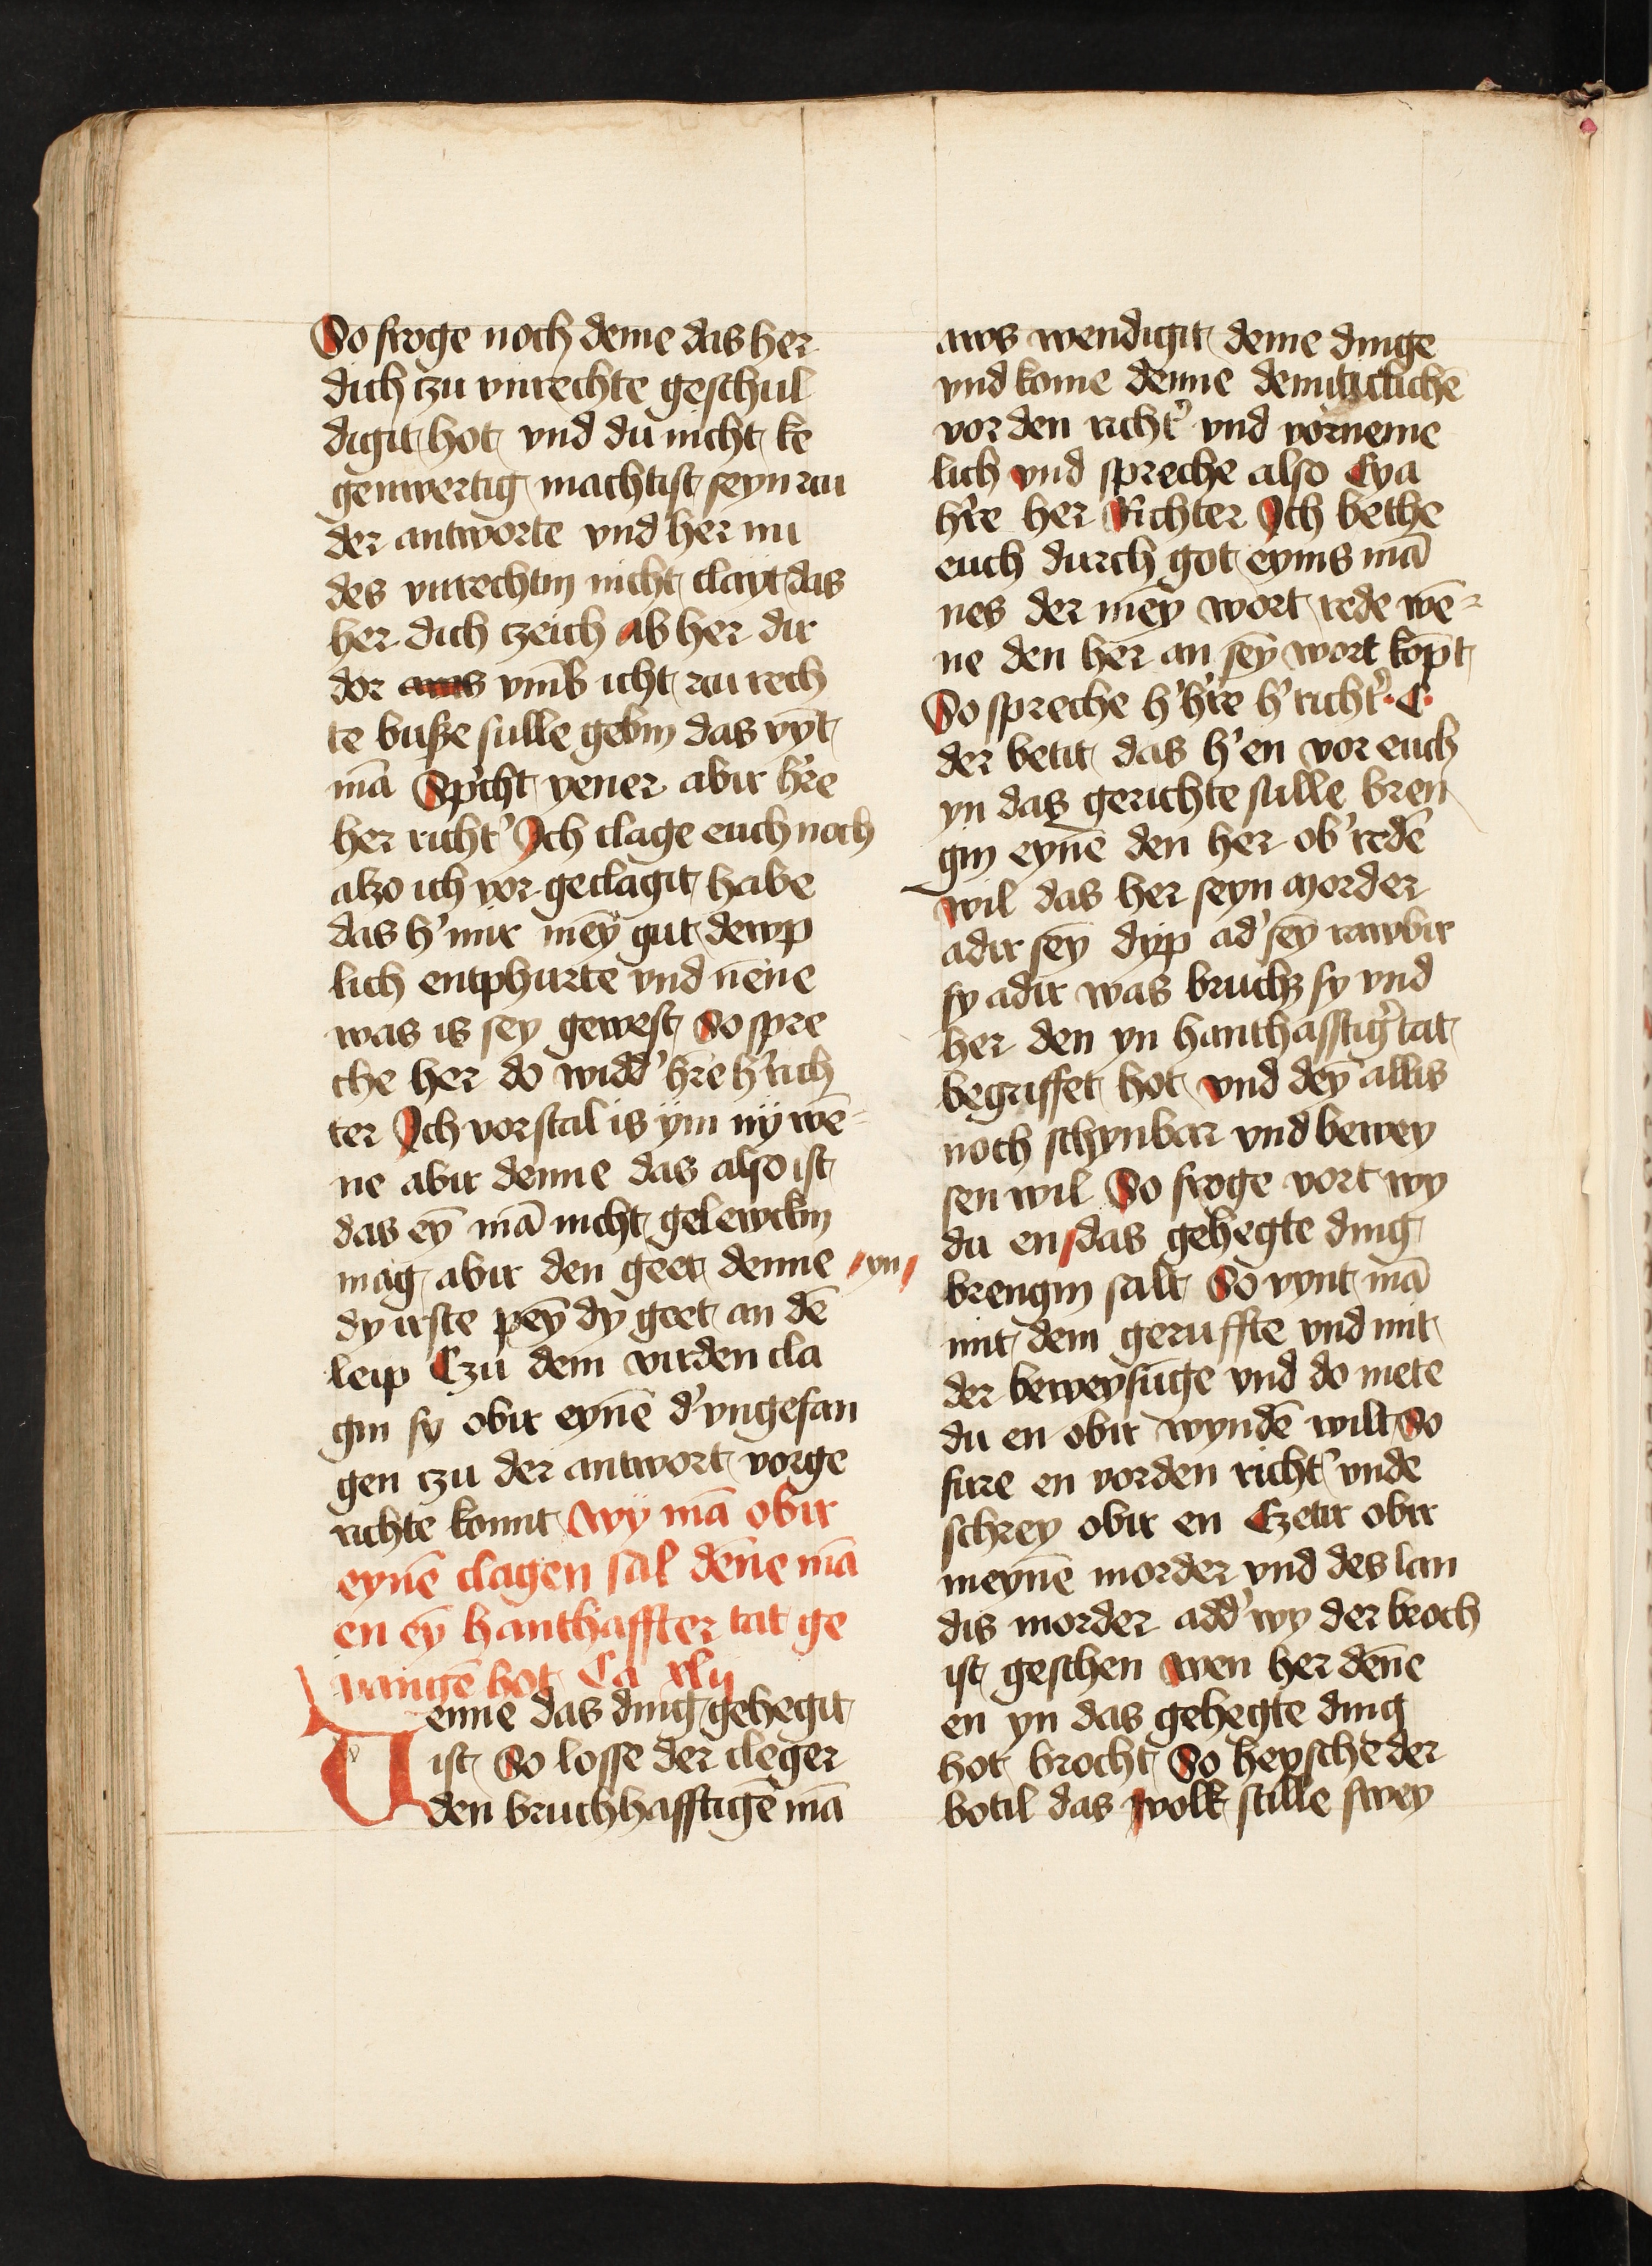 So froge noch deme das her
dich czu vnrechte geschul
digit hot vnd du nicht ke
genwertig machtist seyn czu
der antworte vnd her nu
des vnrechtin nicht clayt das
her dich czeich ab her dir
dor aws vm̄b icht czu rech
te buße sulle gebin das vynt
mā Sp'cht yener abir h're
her richt' Ich clage euch noch
alzo ich vor geclagit habe
das h' mir mey̅ gut dewp
lich entphurte vnd nēne
was is sey gewest So spre
che her do widd' h're h' rich
ter Ich vorstal is ym ny wē
ne abir denne das also ist
das ey̅ mā nicht gelewckin
mag abir den geet denne yn
dy irste pey̅ dy geet an dē
leip Czu dem virden cla
gin sy obir eynē d' vngefan
gen czu der antwort vorge
richte komt Wy mā obir
eynē clagen sal dēne mā
en ey̅ hanthaffter tat ge
vangē hot Ca xlij
Wenne das ding gehegit
ist So losse der cleger
den bruchhafftigē mā
aws wendigit deme dinge
vnd kome denne demuticlichē
vor den richt' vnd vorneme
lich vnd spreche also Eya
h're her Richter Ich bethe
euch durch got eynis mā
nes der mey̅ wort rede wē
ne den her an sey̅ wort kōpt
So spreche h' h're h' richt' C
der betit das h' en vor euch
yn das gerichte sulle bren
gin eynē den her ob' redē
wil das her seyn morder
adir sey̅ dyp ad' sey̅ rawbir
sy adir was bruchz sy vnd
her den yn hanthafftig' tat
begriffet hot vnd dey̅ allis
noch schynbar vnd bewey
sen wil So froge vort wy
du en das gehegte ding
brengin salt So vynt mā
mit dem geruffte vnd mit
der beweysūge vnd do mete
du en obir wyndē wilt So
fure en vor den richt' vnde
schrey obir en Czetir obir
meynē morder vnd des lan
dis morder add' wy der broch
ist geschen wen her dēne
en yn das gehegte ding
hot brocht So heysche der
botil das wolk stille swey